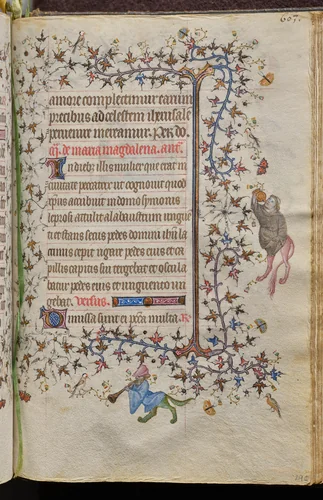 607.
amore complectimur earum
precibus ad celestem ihrusale
peruenire mereamur. Per do.
De maria magdalena. ant.
In dieb; illis mulier que erat in
ciuitate peccatrix ut cognouit quod
xpus accubuit in domo symonis
leprosi attulit alabaustrum ungue
ti et stans secus pedes domini ihu la
crimis cepit rigare pedes eius et ca
pillis capitis sui tergebat et oscula
batur pedes eius et unguento un
gebat. Versus.
Dimissa sunt ei pcca multa. R.